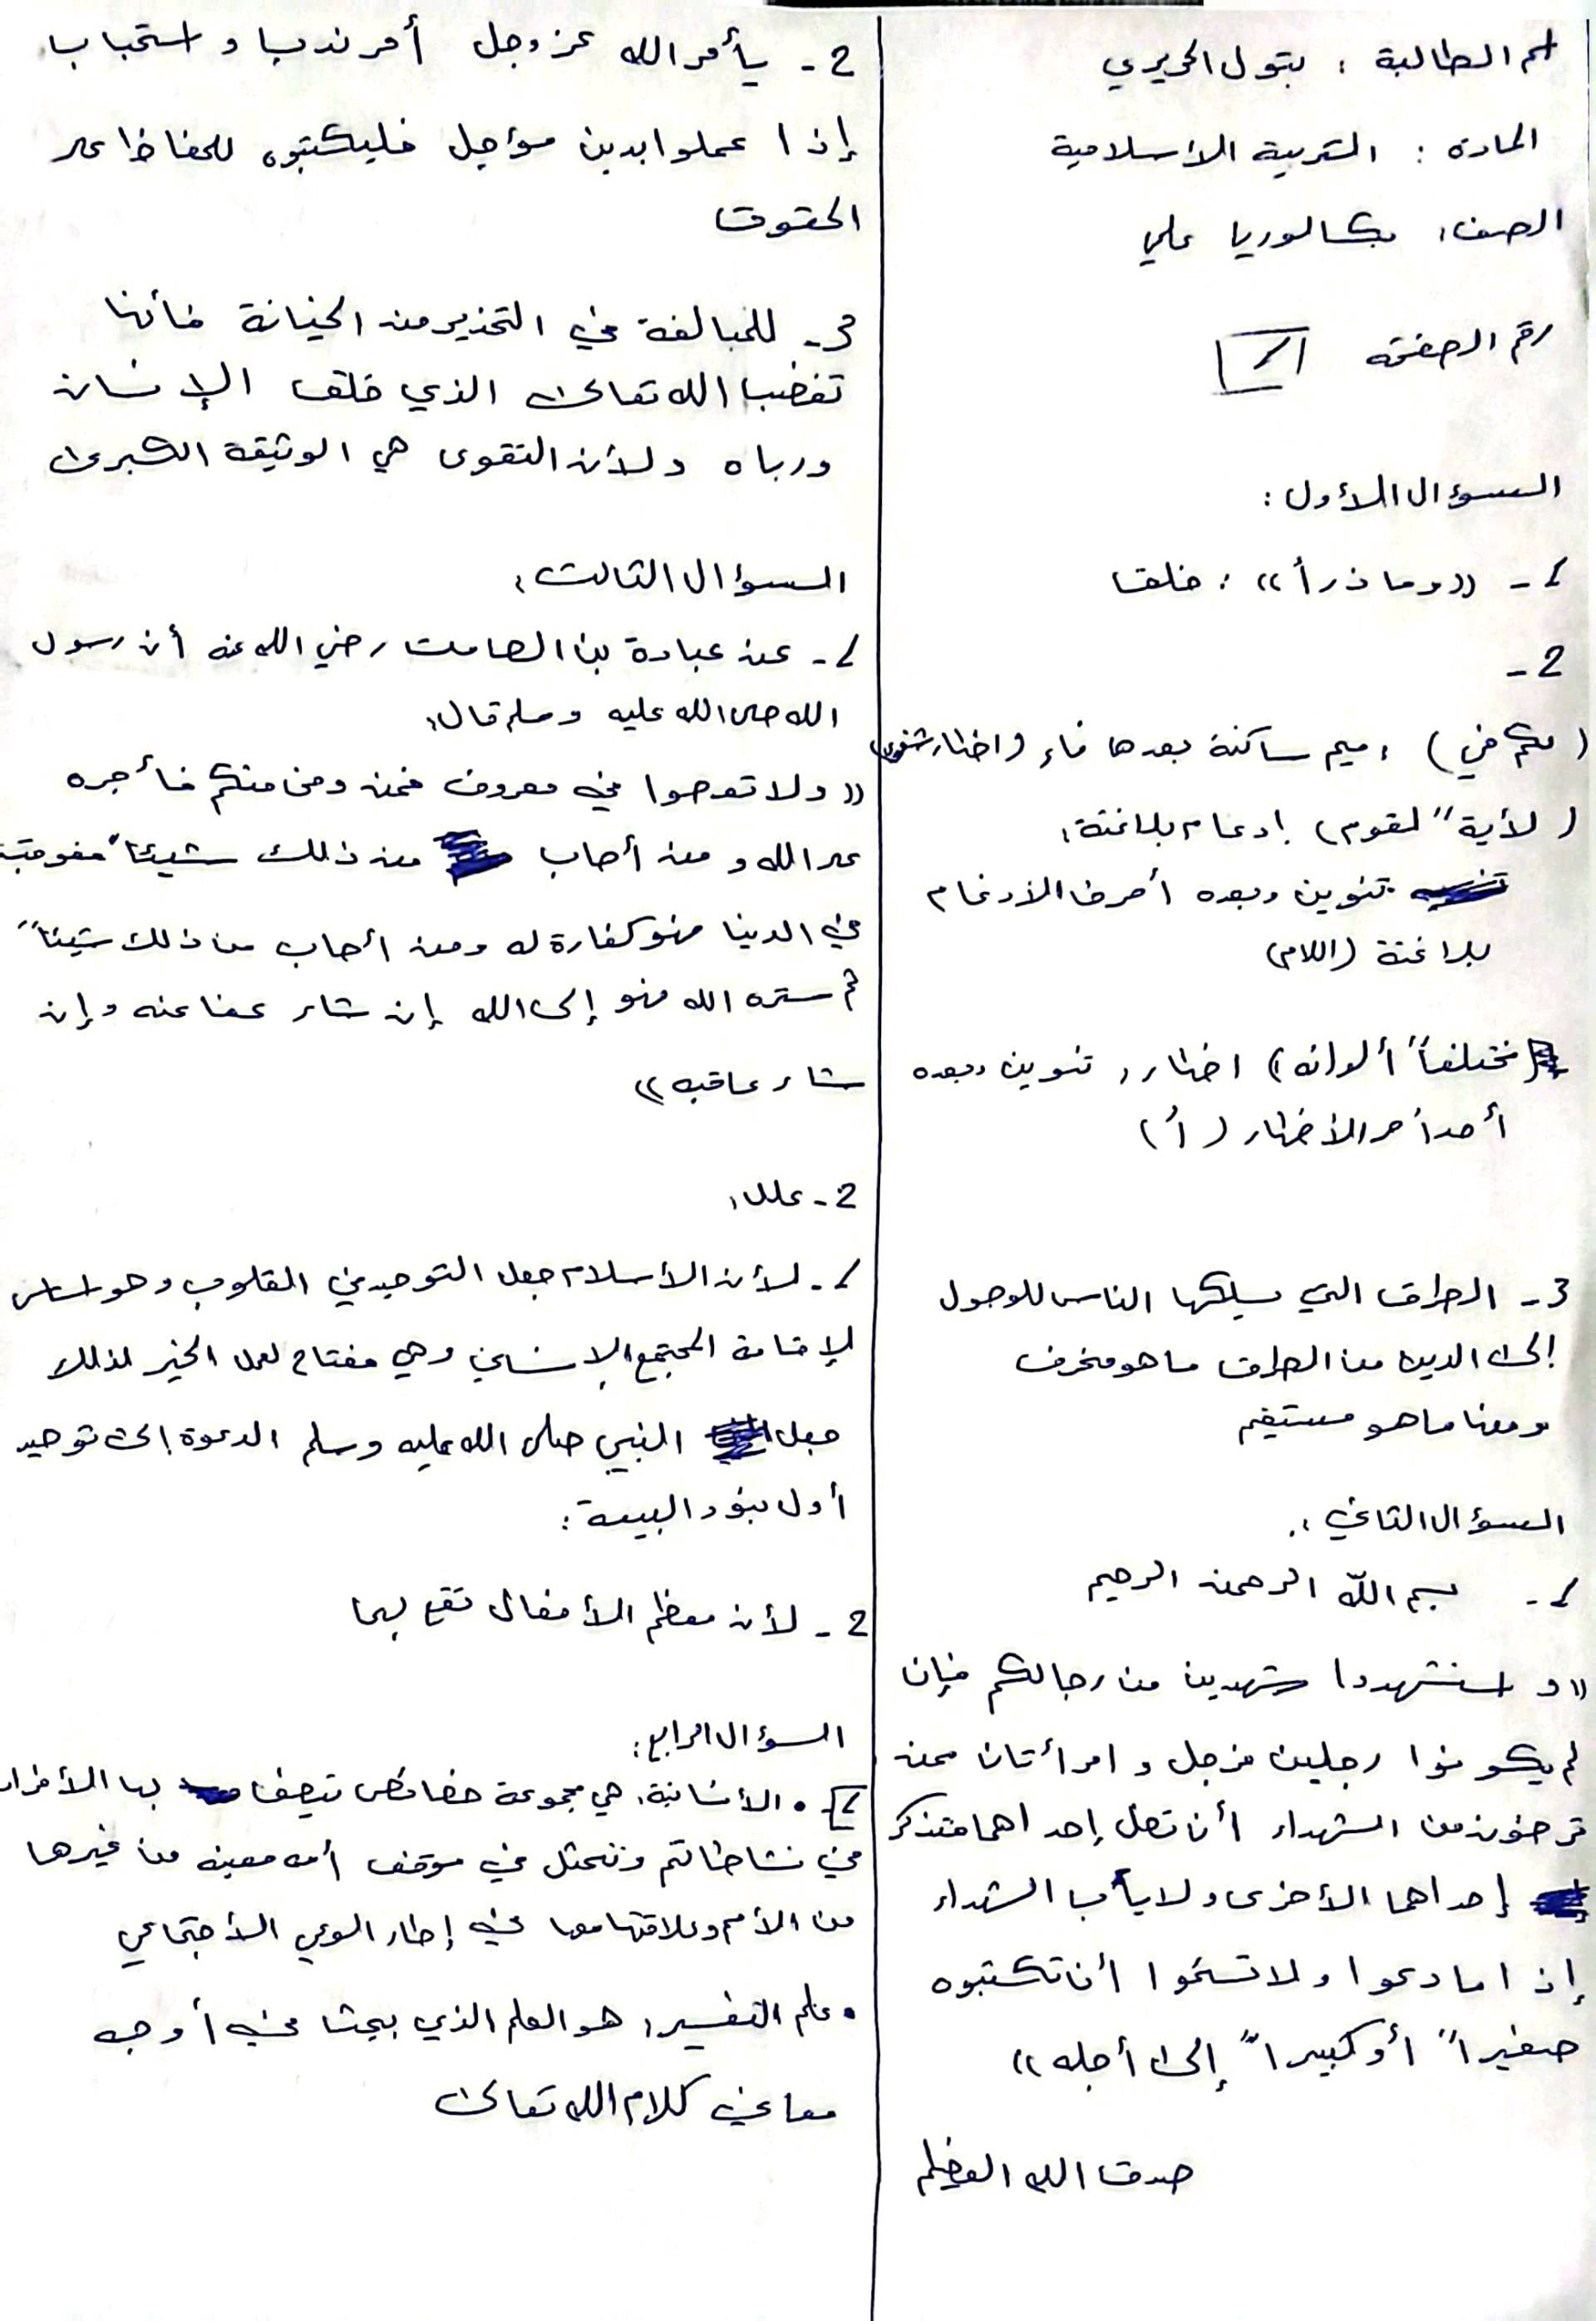 اسم الطالبة : بتول الحريري
المادة : التربية الاسلامية
الصف : بكالوريا علمي
رقم الصفحة 1
السؤال الأول :
1 - ((وما ذرأ)) : خلق
2 -
(لكم في) : ميم ساكنة بعدها فاء (اظهار شفوي)
(لأية" لقوم) إدغام بلاغنة :
تنوين وبعده أحرف الادغام
بلا غنة (اللام)
(مختلفاً ألوانه) اظهار : تنوين وبعده
أحد أحر الاظهار (أ)
3 - الطرق التي يسلكها الناس للوصول
إلى الدين من الطرق ما هو منحرف
ومنا ما هو مستقيم
السؤال الثاني :
1 - بسم الله الرحمن الرحيم
((و استشهدوا شهدين من رجالكم فإن
لم يكونوا رجلين فرجل و امرأتان ممن
ترضون من الشهداء أن تضل إحداهما فتذكر
إحداهما الأخرى ولا يأب الشهداء
إذا ما دعوا ولا تسئموا أن تكتبوه
صغيراً أو كبيراً إلى أجله))
صدق الله العظيم
2 - يأمر الله عز وجل أمر ندب و استحباب
إذا عملوا بدين مؤجل فليكتبوه للحفاظ على
الحقوق
3 - للمبالغة في التحذير من الخيانة فأنها
تغضب الله تعالى الذي خلق الإنسان
ورباه ولأن التقوى هي الوثيقة الكبرى
السؤال الثالث :
1 - عن عبادة بن الصامت رضي الله عنه أن رسول
الله صلى الله عليه وسلم قال :
((ولا تعصوا في معروف فمن وفى منكم فأجره
على الله و من أصاب من ذلك شيئاً فعوقب
في الدنيا فهو كفارة له ومن أصاب من ذلك شيئاً
ثم ستره الله فهو إلى الله إن شاء عفا عنه وإن
شاء عاقبه))
2 - علل :
1 - لأن الأسلام جعل التوحيد في القلوب وهو اساس
لإقامة المجتمع الإنساني وهي مفتاح لعمل الخير لذلك
جعل النبي صلى الله عليه وسلم الدعوة إلى توحيد
أول بنود البيعة :
2 - لأن معظم الأفعال تقع بهما
السؤال الرابع :
1 • الأنسانية : هي مجموعة خصائص تتصف بها الأفراد
في نشاطاتهم وتتمثل في موقف أمه معينه من غيرها
من الأمم وعلاقتها معها في إطار الوعي الأجتماعي
• علم التفسير : هو العلم الذي يبحث فيه أوجه
معاني كلام الله تعالى